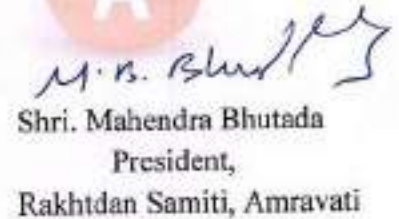 A
M. B. Bhu
Shri. Mahendra Bhutada
President,
Rakhtdan Samiti, Amravati